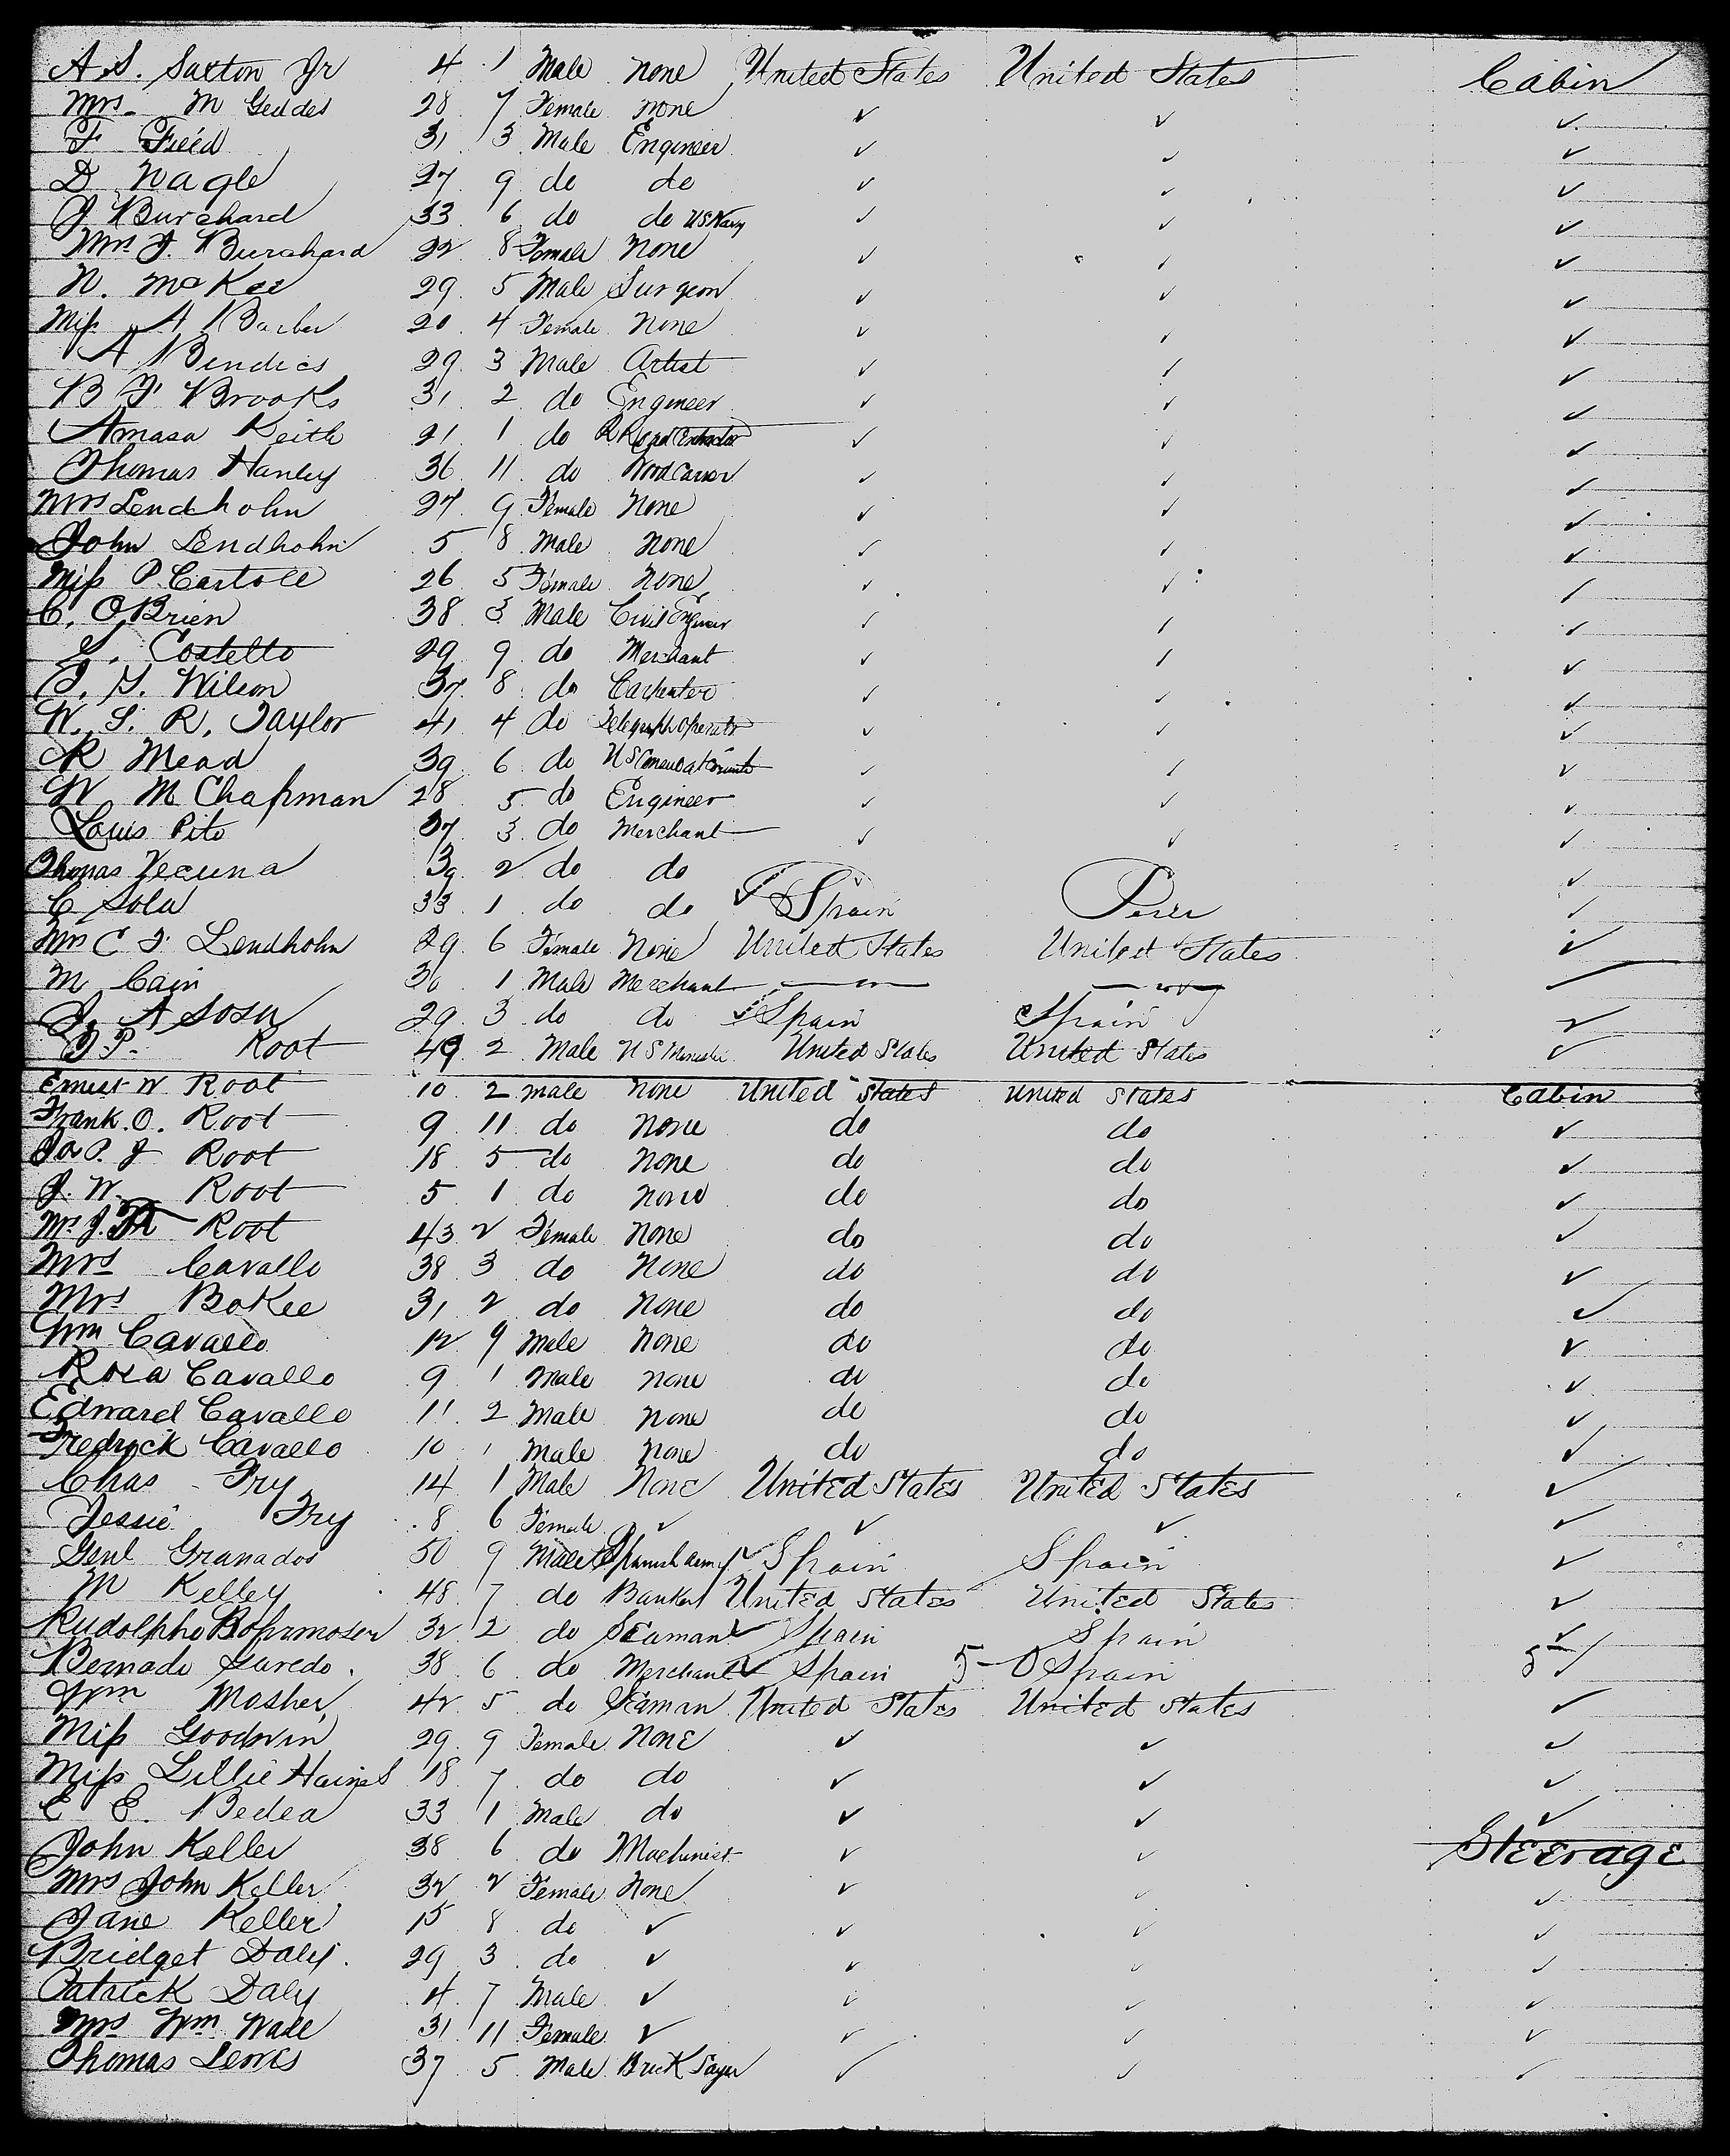 A. S. Saxton Jr 4 1 Male none United States United States Cabin
Mrs. M Geddes 28 7 Female none ✓ ✓ ✓
F Fried 31 3 Male Engineer ✓ ✓ ✓
D Nagle 27 9 do do ✓ ✓ ✓
J Burchard 33 6 do do US Navy ✓ ✓ ✓
Mrs J. Burchard 22 8 Female None ✓ ✓ ✓
N. McKee 29 5 Male Surgeon ✓ ✓ ✓
Miss A Barber 20 4 Female None ✓ ✓ ✓
A Bendics 29 3 Male Artist ✓ ✓ ✓
B F Brooks 31 2 do Engineer ✓ ✓ ✓
Amasa Keith 21 1 do R Road Contractor ✓ ✓ ✓
Thomas Hanley 36 11 do Wood Carver ✓ ✓ ✓
Mrs Lendholm 27 9 Female None ✓ ✓ ✓
John Lendholm 5 8 Male None ✓ ✓ ✓
Miss P. Castole 26 5 Female None ✓ ✓ ✓
C. OBrien 38 3 Male Civil Engineer ✓ ✓ ✓
S. Costello 29 9 do Merchant ✓ ✓ ✓
J. G. Wilson 37 8 do Carpenter ✓ ✓ ✓
W. S. R. Taylor 41 4 do Telegraph Operator ✓ ✓ ✓
R Mead 39 6 do US Consul at ✓ ✓ ✓
W M Chapman 28 5 do Engineer ✓ ✓ ✓
Louis Pito 37 3 do Merchant ✓ ✓ ✓
Thomas Vecuna 39 2 do do ✓
C Sola 33 1 do do ✓ Spain Peru ✓
Mrs C F Lendholm 29 6 Female None United States United States ✓
M Cain 30 1 Male Merchant
J. A Sosa 29 3 do do ✓ Spain Spain ✓
J. P. Root 49 2 Male U S Minister United States United States ✓
Ernest W Root 10 2 male none United States United States Cabin
Frank. O. Root 9 11 do none do do ✓
P. J Root 18 5 do none do do ✓
J. W. Root 5 1 do none do do ✓
Mrs J. Root 43 2 Female none do do ✓
Mrs Cavallo 38 3 do None do do ✓
Mrs BoKee 31 2 do none do do ✓
Wm Cavallo 12 9 Male none do do ✓
Rosa Cavallo 9 1 male none do do ✓
Edward Cavallo 11 2 Male none do do ✓
Fredrick Cavallo 10 1 Male none do do ✓
Chas Fry 14 1 Male None United States United States ✓
Jessie Fry 8 6 Female ✓ ✓ ✓ ✓
Genl Granados 50 9 Male Spanish Army ✓ Spain Spain ✓
M Kelley 48 7 do Banker United States United States ✓
Rudolpho 32 2 do Seaman ✓ Spain Spain ✓
Bernado Laredo. 38 6 do Merchant ✓ Spain 5-0 Spain 5 ✓
Wm Mosher 42 5 do Seaman United States United States ✓
Miss Goodwin 29 9 Female None ✓ ✓ ✓
Miss Lillie Haines 18 7 do do ✓ ✓ ✓
E E. Bedea 33 1 Male do ✓ ✓ ✓
John Keller 38 6 do Machinist ✓ ✓ Steerage
Mrs John Keller 32 2 Female None ✓ ✓ ✓
Jane Keller 15 8 do ✓ ✓ ✓ ✓
Bridget Daly. 29 3 do ✓ ✓ ✓ ✓
Patrick Daly 4 7 Male ✓ ✓ ✓ ✓
Mrs Wm Wade 31 11 Female ✓ ✓ ✓ ✓
Thomas Lewis 37 5 Male Brick Layer ✓ ✓ ✓